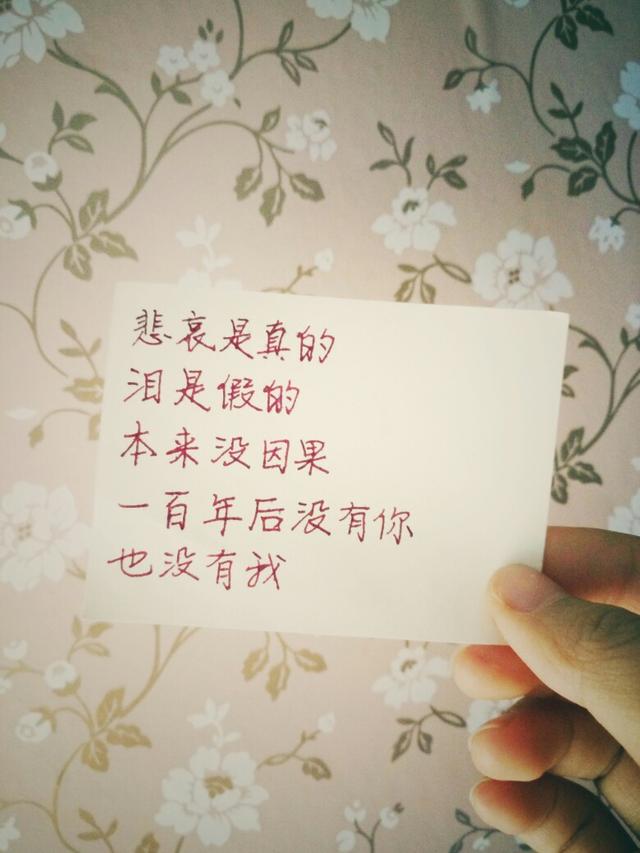 悲哀是真的
泪是假的
本来没因果
一百年后没有你
也没有我